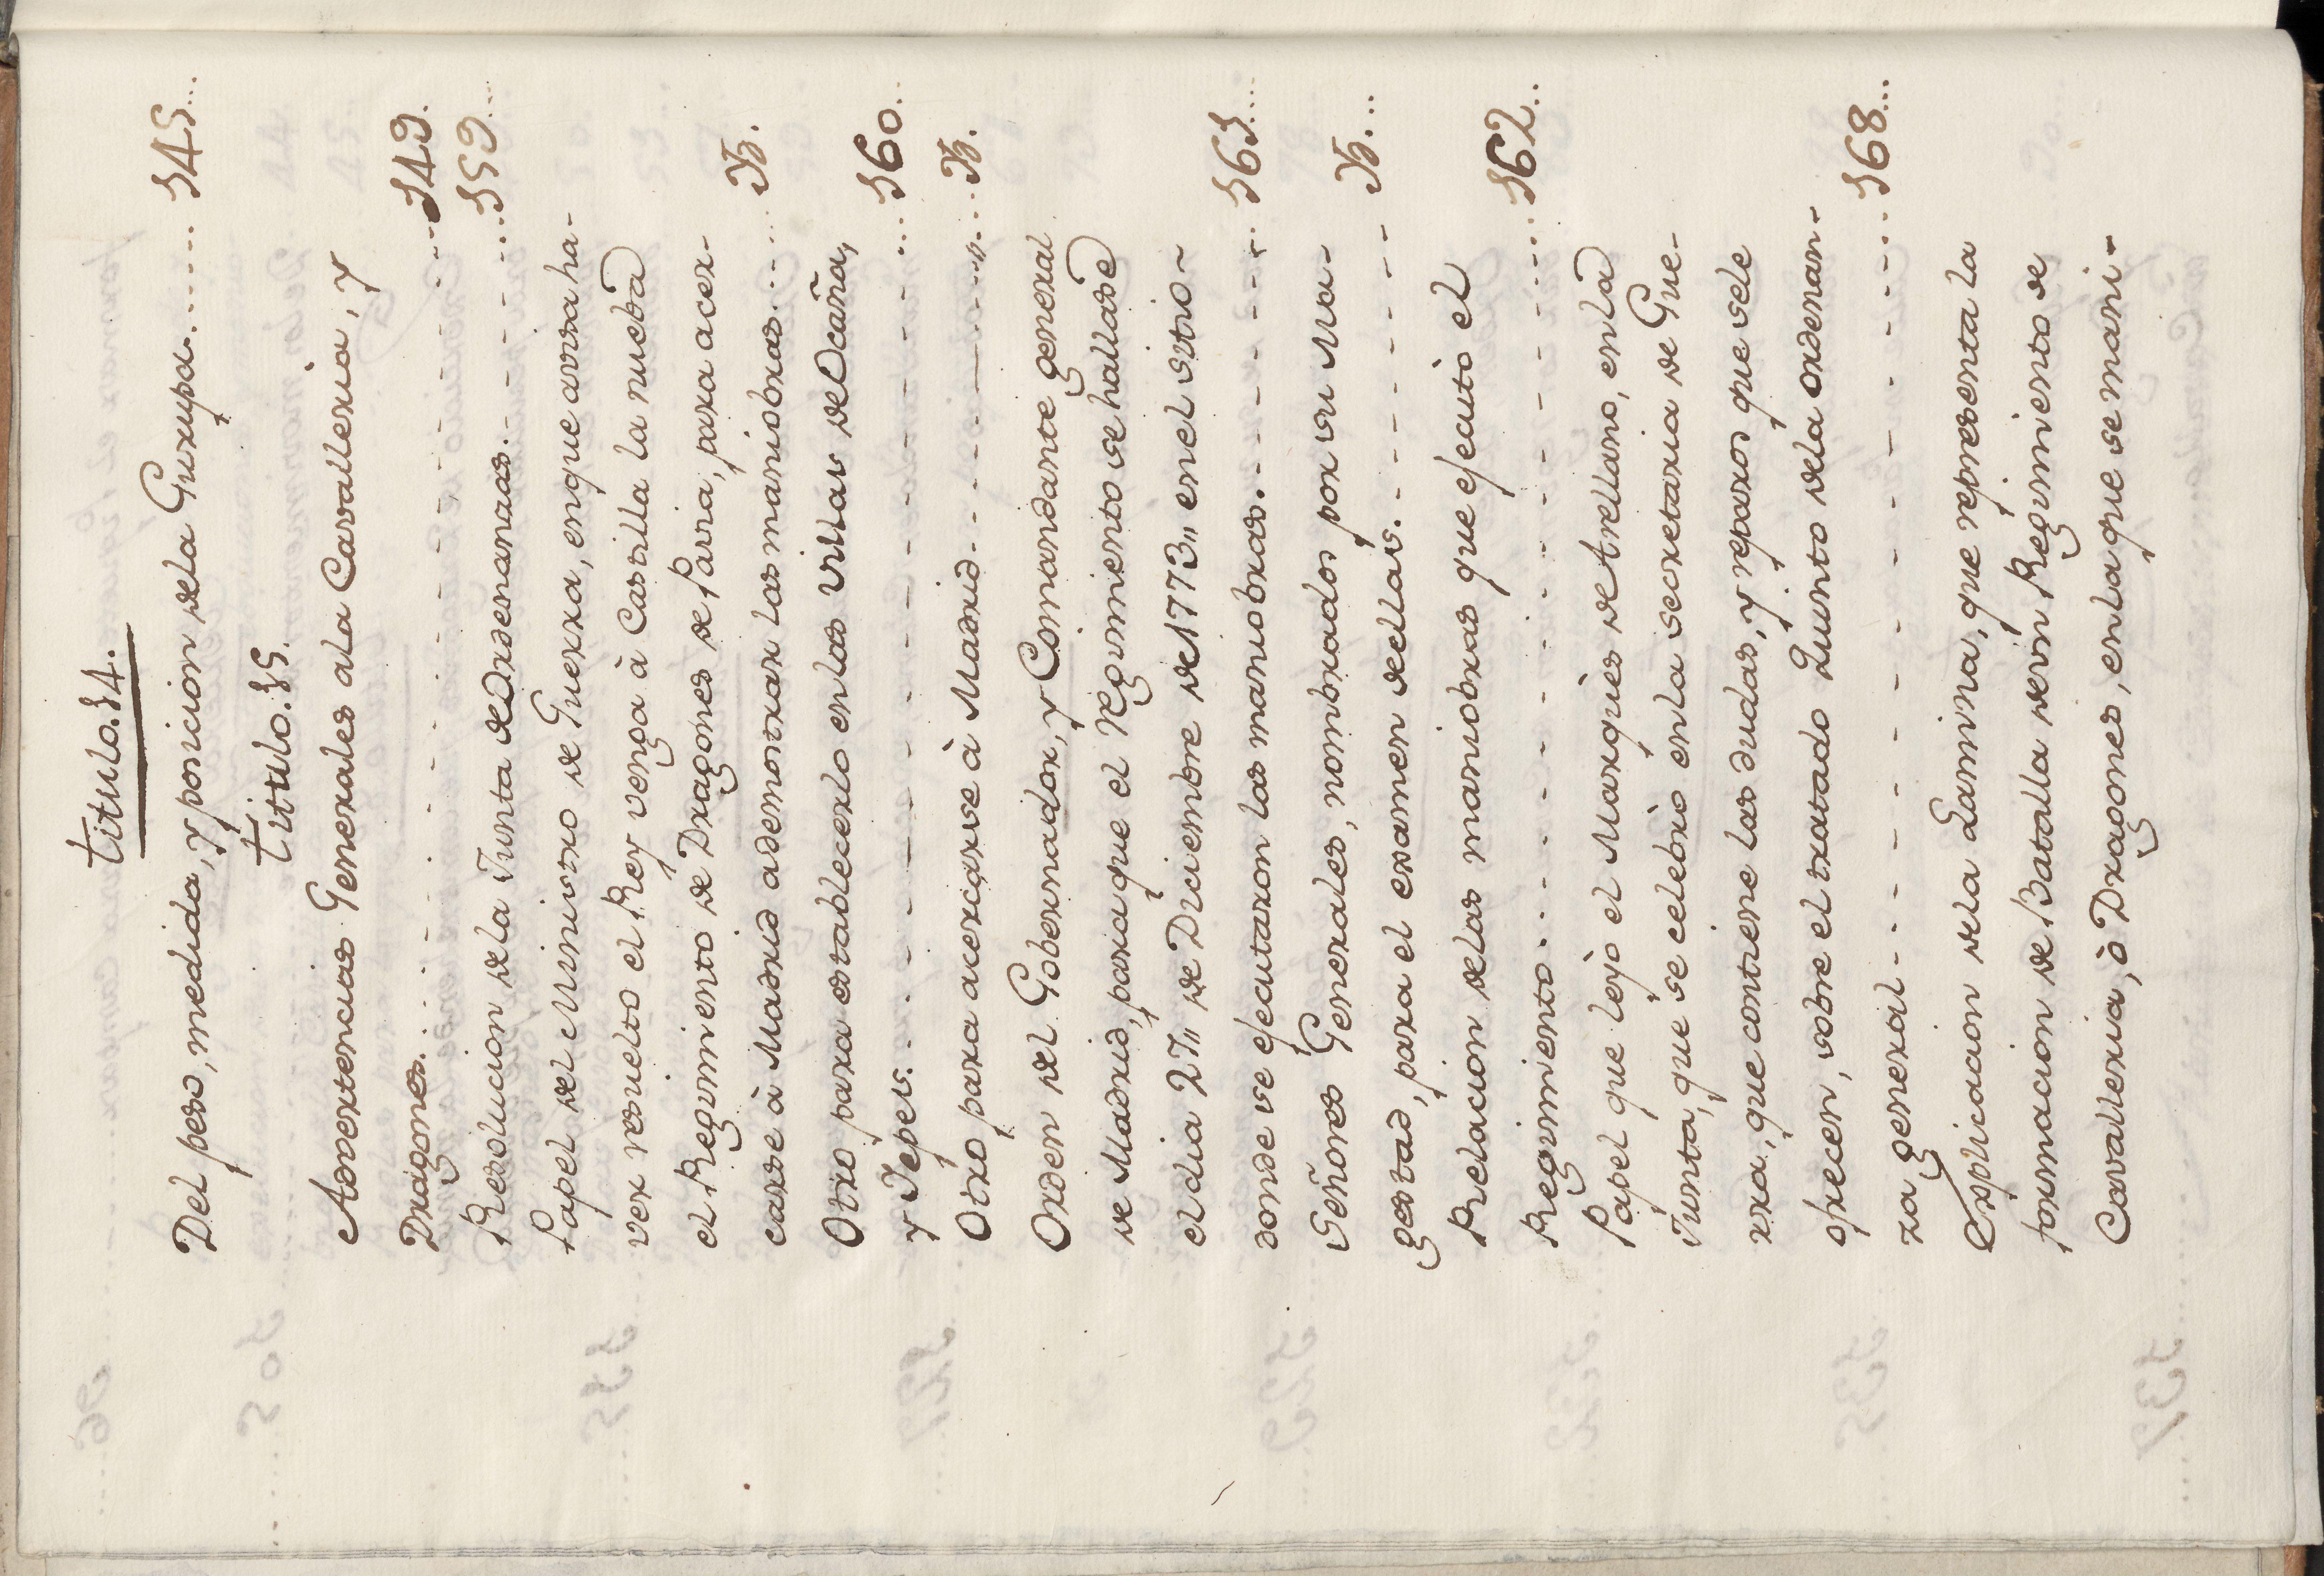 titulo.14.
Del peso, medida, y posicion dela Gurupa...... 145...
titulo.15.
Advertencias Generales ala Cavalleria, y
Dragones. . . . - . . . . - - - - - - - - ...149.
Resolucion dela Junta deOrdenanzas. - - - - - ...159...
Papel del Ministro de Guerra, enque avisa ha-
ver resuelto el Rey venga à Castilla la nueba
el Regimiento de Dragones de Pavia, para acer-
carse à Madrid ademostrar las maniobras..... Yb.
Otro para establecerlo enlas villas deOcaña,
y Yepes. . . . - - - - - - - - - - - - ...160...
Otro para acercarse à Madrid. - - - - - ....Yb.
Orden del Gobernador, y Comandante general
de Madrid, para que el Regimiento se hallase
eldia 27,, de Diciembre de1773,, enel sitio~
donde se ejecutaron las maniobras. - - - - - - .. 161...
Señores Generales, nombrados por su Ma-
gestad, para el examen dellas. - - - - - - - - Yb...
Relacion delas maniobras que ejecutò el
Regimiento. . . . - - - - - - - - - - - ....162..
Papel que leyò el Marquès de Arellano, enla
Junta, que se celebrò enla secretaria de Gue-
rra, que contiene las dudas, y reparos que sele
ofrecen, sobre el tratado Quinto dela ordenan-
za general- - - - - - - - - - - - - ...168...
Explicacion dela Lamina, que representa la
formacion de Batalla deún Regimiento de
Cavalleria, ò Dragones, enlaque se mani-